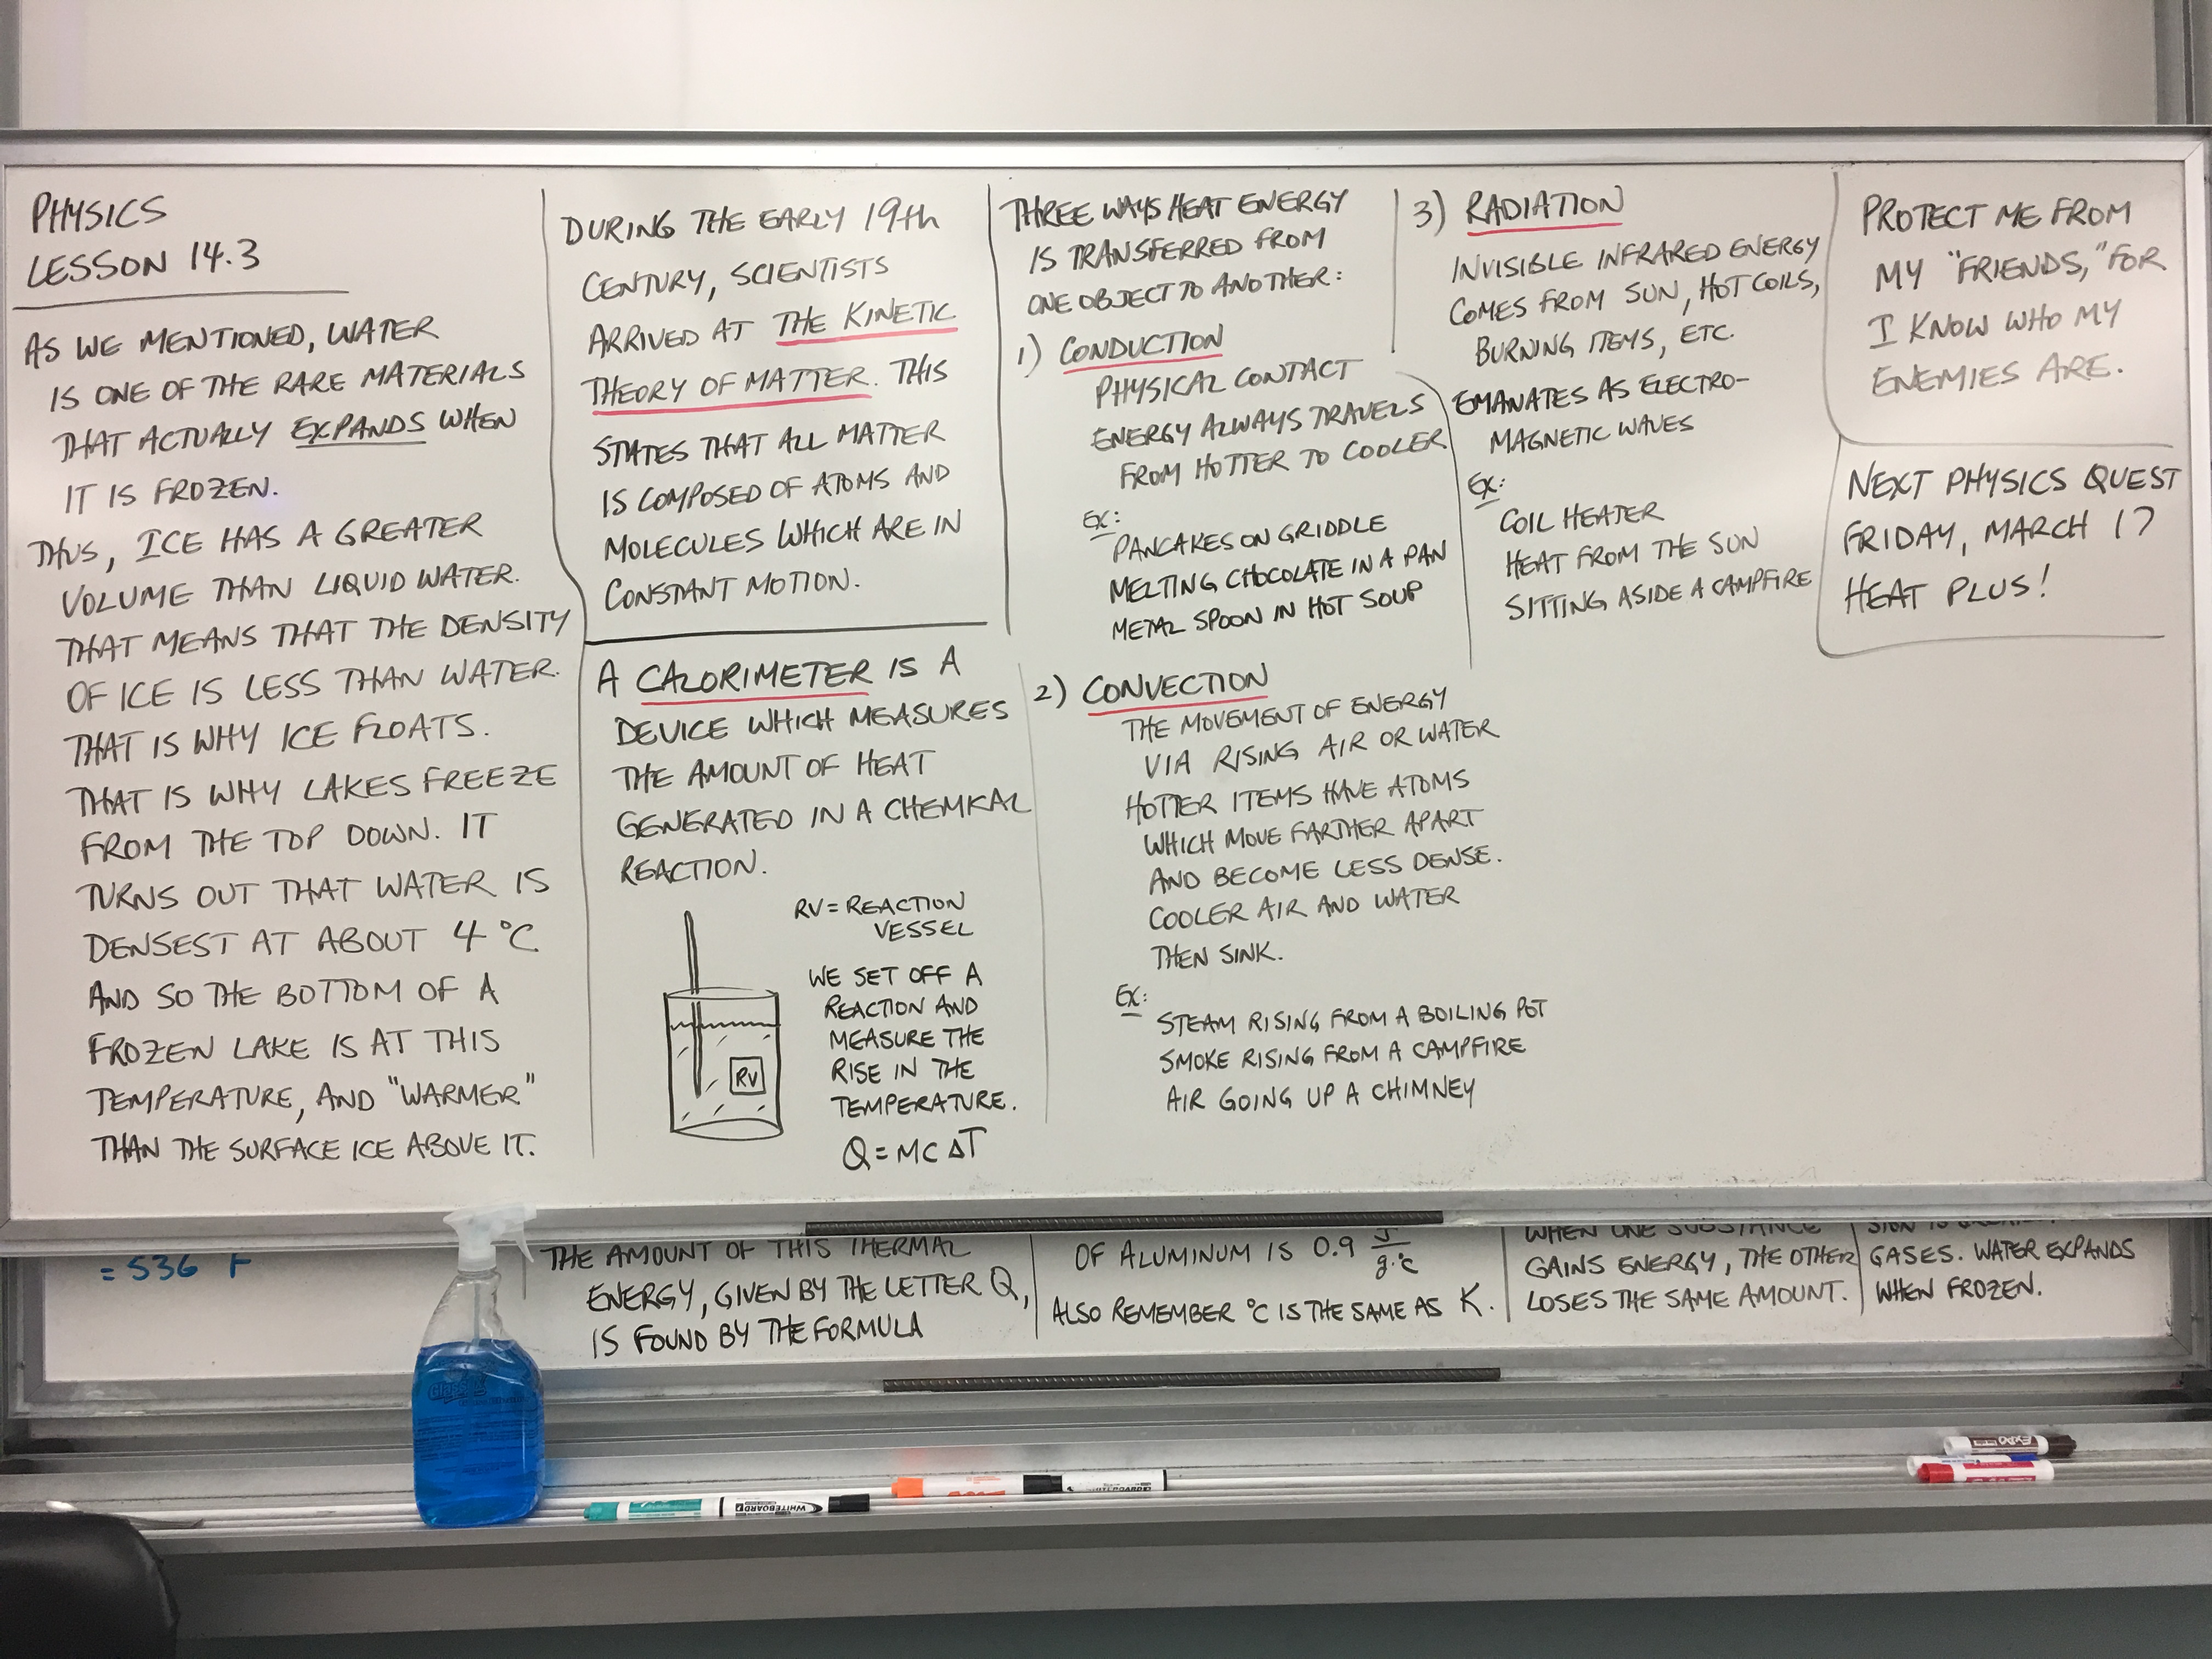 PHYSICS
LESSON 14.3
AS WE MENTIONED, WATER
IS ONE OF THE RARE MATERIALS
THAT ACTUALLY EXPANDS WHEN
IT IS FROZEN.
THUS, ICE HAS A GREATER
VOLUME THAN LIQUID WATER.
THAT MEANS THAT THE DENSITY
OF ICE IS LESS THAN WATER.
THAT IS WHY ICE FLOATS.
THAT IS WHY LAKES FREEZE
FROM THE TOP DOWN. IT
TURNS OUT THAT WATER IS
DENSEST AT ABOUT 4 °C
AND SO THE BOTTOM OF A
FROZEN LAKE IS AT THIS
TEMPERATURE, AND "WARMER"
THAN THE SURFACE ICE ABOVE IT.
DURING THE EARLY 19th
CENTURY, SCIENTISTS
ARRIVED AT THE KINETIC
THEORY OF MATTER. THIS
STATES THAT ALL MATTER
IS COMPOSED OF ATOMS AND
MOLECULES WHICH ARE IN
CONSTANT MOTION.
A CALORIMETER IS A
DEVICE WHICH MEASURES
THE AMOUNT OF HEAT
GENERATED IN A CHEMICAL
REACTION.
RV = REACTION
VESSEL
WE SET OFF A
REACTION AND
MEASURE THE
RISE IN THE
TEMPERATURE.
Q = MC ΔT
RV
THREE WAYS HEAT ENERGY
IS TRANSFERRED FROM
ONE OBJECT TO ANOTHER:
1) CONDUCTION
PHYSICAL CONTACT
ENERGY ALWAYS TRAVELS
FROM HOTTER TO COOLER
EX:
PANCAKES ON GRIDDLE
MELTING CHOCOLATE IN A PAN
METAL SPOON IN HOT SOUP
2) CONVECTION
THE MOVEMENT OF ENERGY
VIA RISING AIR OR WATER
HOTTER ITEMS HAVE ATOMS
WHICH MOVE FARTHER APART
AND BECOME LESS DENSE.
COOLER AIR AND WATER
THEN SINK.
EX:
STEAM RISING FROM A BOILING POT
SMOKE RISING FROM A CAMPFIRE
AIR GOING UP A CHIMNEY
3) RADIATION
INVISIBLE INFRARED ENERGY
COMES FROM SUN, HOT COILS,
BURNING ITEMS, ETC.
EMANATES AS ELECTRO-
MAGNETIC WAVES
EX:
COIL HEATER
HEAT FROM THE SUN
SITTING ASIDE A CAMPFIRE
PROTECT ME FROM
MY "FRIENDS," FOR
I KNOW WHO MY
ENEMIES ARE.
NEXT PHYSICS QUEST
FRIDAY, MARCH 17
HEAT PLUS!
= 536
THE AMOUNT OF THIS THERMAL
ENERGY, GIVEN BY THE LETTER Q,
IS FOUND BY THE FORMULA
OF ALUMINUM IS 0.9 J/g·°C
ALSO REMEMBER °C IS THE SAME AS K.
WHEN ONE SUBSTANCE
GAINS ENERGY, THE OTHER
LOSES THE SAME AMOUNT.
GASES. WATER EXPANDS
WHEN FROZEN.
WHITEBOARD
EXPO